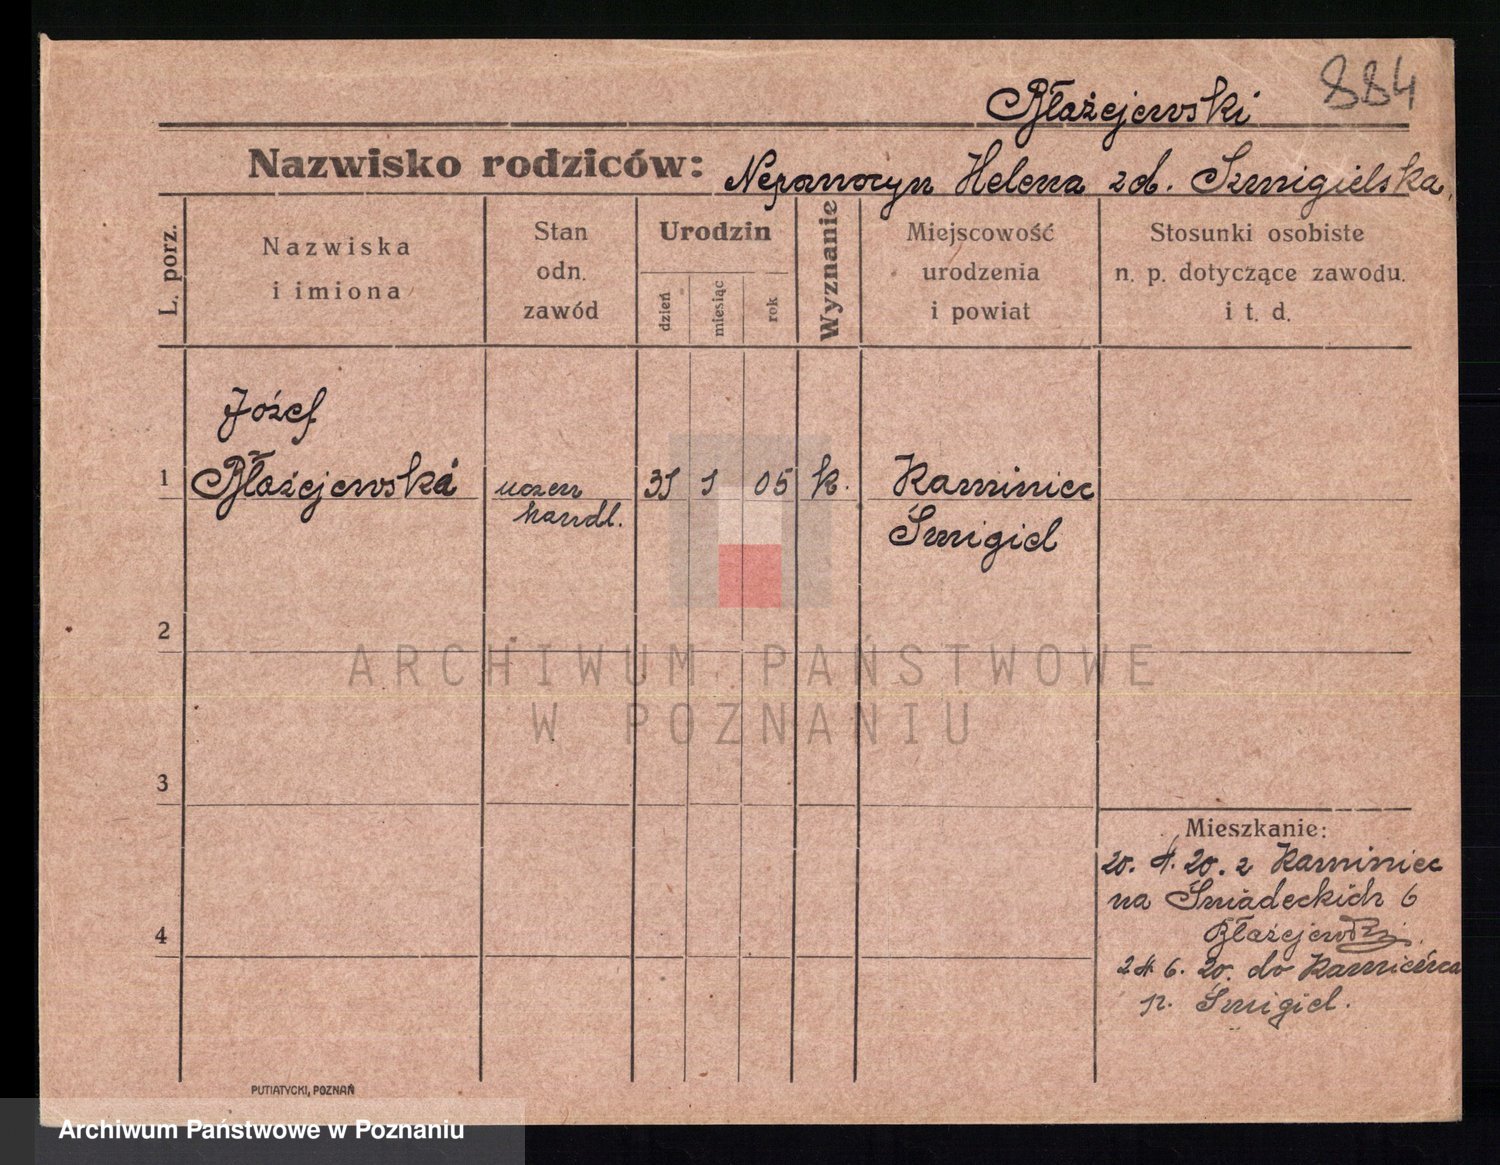 884
Błażejewski
Nazwisko rodziców: Nepomocyn Helena zd. Szmigielska
L. porz.
Nazwiska
i imiona
Stan
odn.
zawód
Urodzin
dzień
miesiąc
rok
Wyznanie
Miejscowość
urodzenia
i powiat
Stosunki osobiste
n. p. dotyczące zawodu.
i t. d.
Józef
1 Błażejewski uczeń 31 1 05 k. Kaminiec
handl. Śmigiel
2
3
4
Mieszkanie:
20. 4. 20. z Kaminiec
na Śniadeckich 6
Błażejewski
24 6. 20. do Kamieńca
p. Śmigiel.
PUTIATYCKI, POZNAŃ
ARCHIWUM PAŃSTWOWE
W POZNANIU
Archiwum Państwowe w Poznaniu